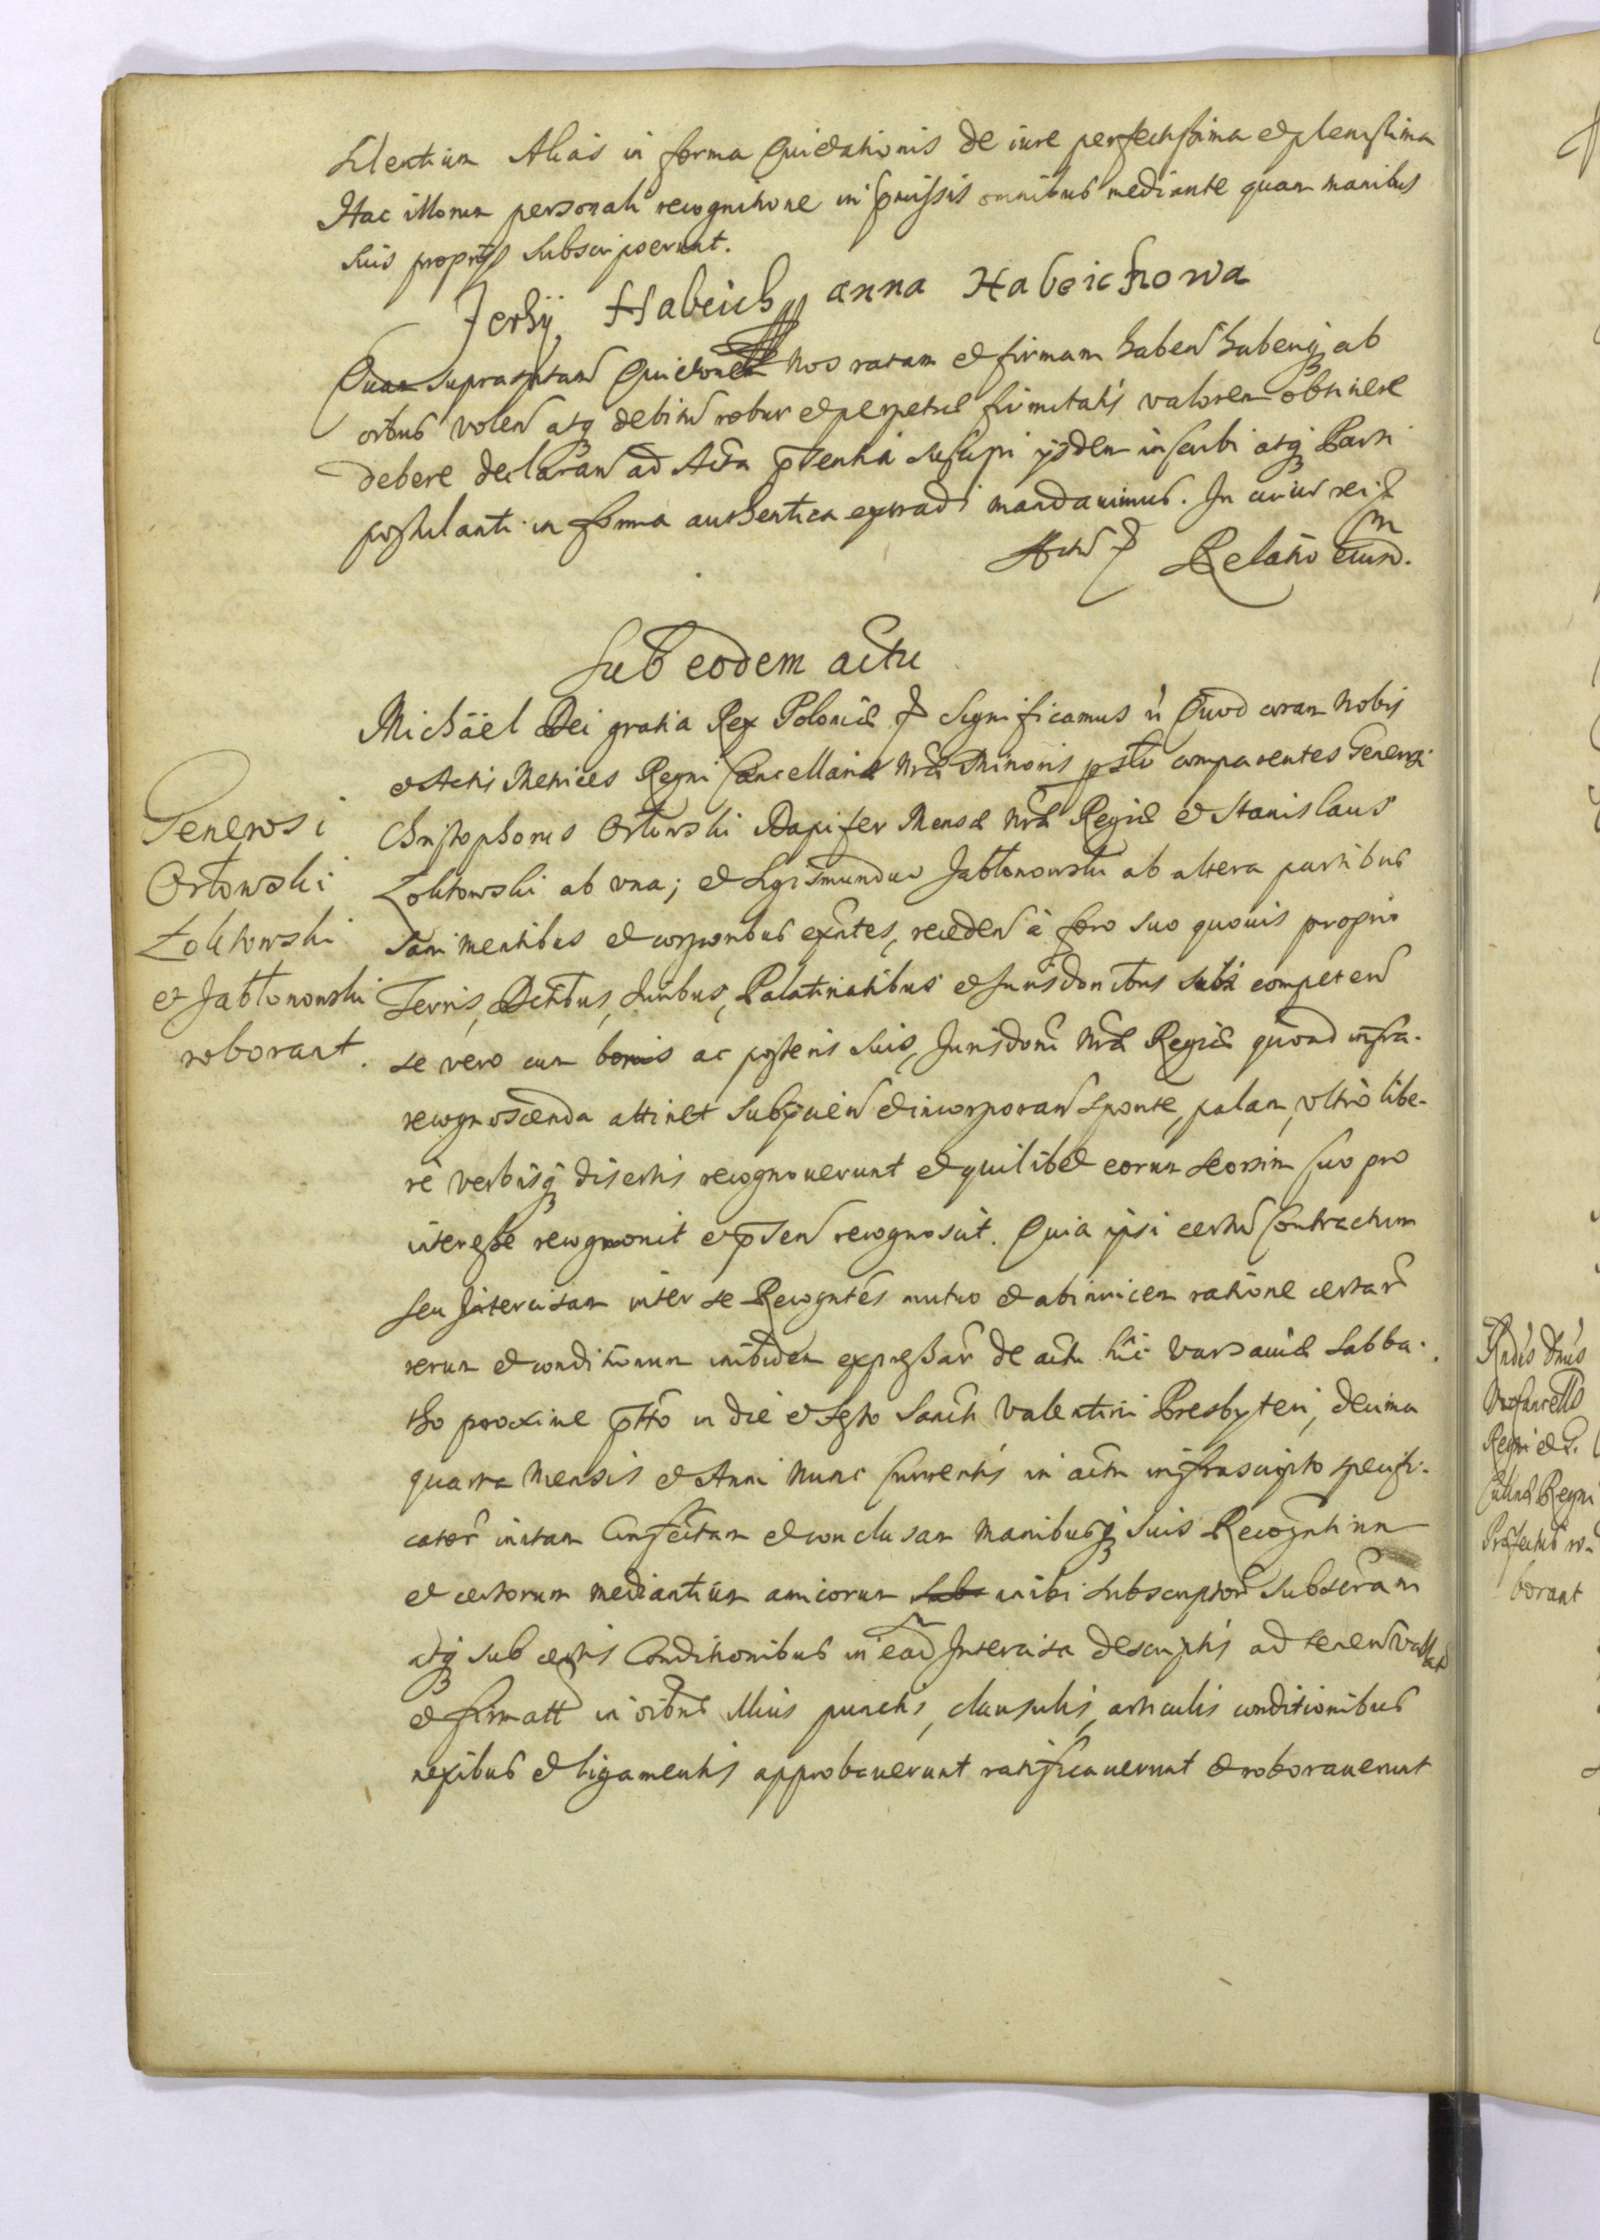 silentium Alias in forma Quietationis de iure perfectissima et plenissima
Hac illorum personali recognitione in praemissis omnibus mediante quam manibus
suis proprijs subscripserunt.
Jerhÿ Habeich anna Habeichowa
Quam supra Nos ratam et firmam haben haberiq ab
oibus volen atq debitu robur et perpetuae firmitatis valorem obtinere
debere declaran ad Acta pntia suscipi ijsdem inscribi atq Parti
postulanti in forma authentica extradi mandavimus. In cuius rei
Actu Relatio eiusd.
Sub eodem actu
Michäel Dei gratia Rex Poloniae Significamus Quod coram Nobis
et Actis Metrices Regni Cancellariae Nrae Minoris comparentes Generosi
Christophorus Orłowski Dapifer Mensae Nrae Regiae et Stanislaus
Zolitowski ab una; et Sigismundus Jabłonowski ab altera partibus
sani mentibus et corporibus exntes, receden à foro suo quovis proprio
Terris, Juribus, Palatinatibus et Jurisdonibus sibi competen
se vero cum bonis ac posteris suis, Jurisdoni Nrae Regiae quoad infra-
recognoscenda attinet subijcien et incorporan sponte, palam, ultrò libe-
rè verbisq disertis recognoverunt et quilibet eorum seorsim suo pro
interesse recognovit et pnten recognoscit. Quia ipsi certu Contractum
seu Intercisam inter se Recogntes mutuo et abinvicem ratione certar
rerum et conditionum inibidem expressar de actu hic Varsaviae Sabba-
tho proxime in die et festo Sancti Valentini Presbyteri, decima
quarta Mensis et Anni Nunc Currentis in actu infrascripto specifi-
cator initam Confectam et conclusam Manibusq suis Recogntium
et certorum mediantium amicorum inibi subscriptor subscram
atq sub certis Conditionibus in ead Intercisa descriptis ad
et in oibus illius punctis, clausulis, articulis conditionibus
nexibus et ligamentis approbaverunt ratificaverunt et roboraverunt
Generosi
Orłowski
Zolitowski
et Jabłonowski
roborant.
borant